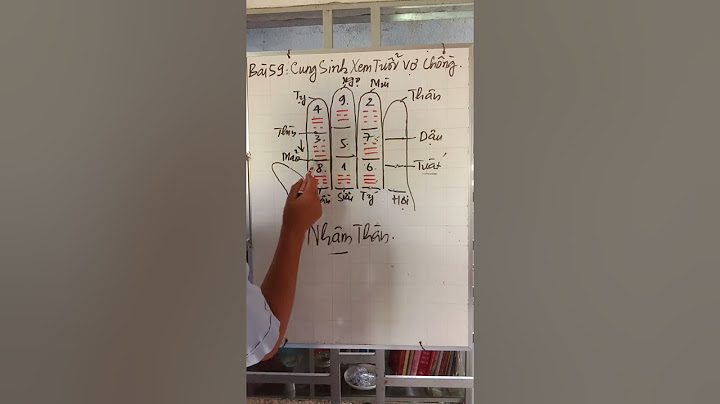 Bài 59: Cung Sinh Xem Tuổi Vợ Chồng.
Tỵ Ngọ Mùi Thân
4 9. 2
Thìn 3. 5. 7. Dậu
Mão 8. 1 6 Tuất
Sửu Tý Hợi
Nhâm Thân.